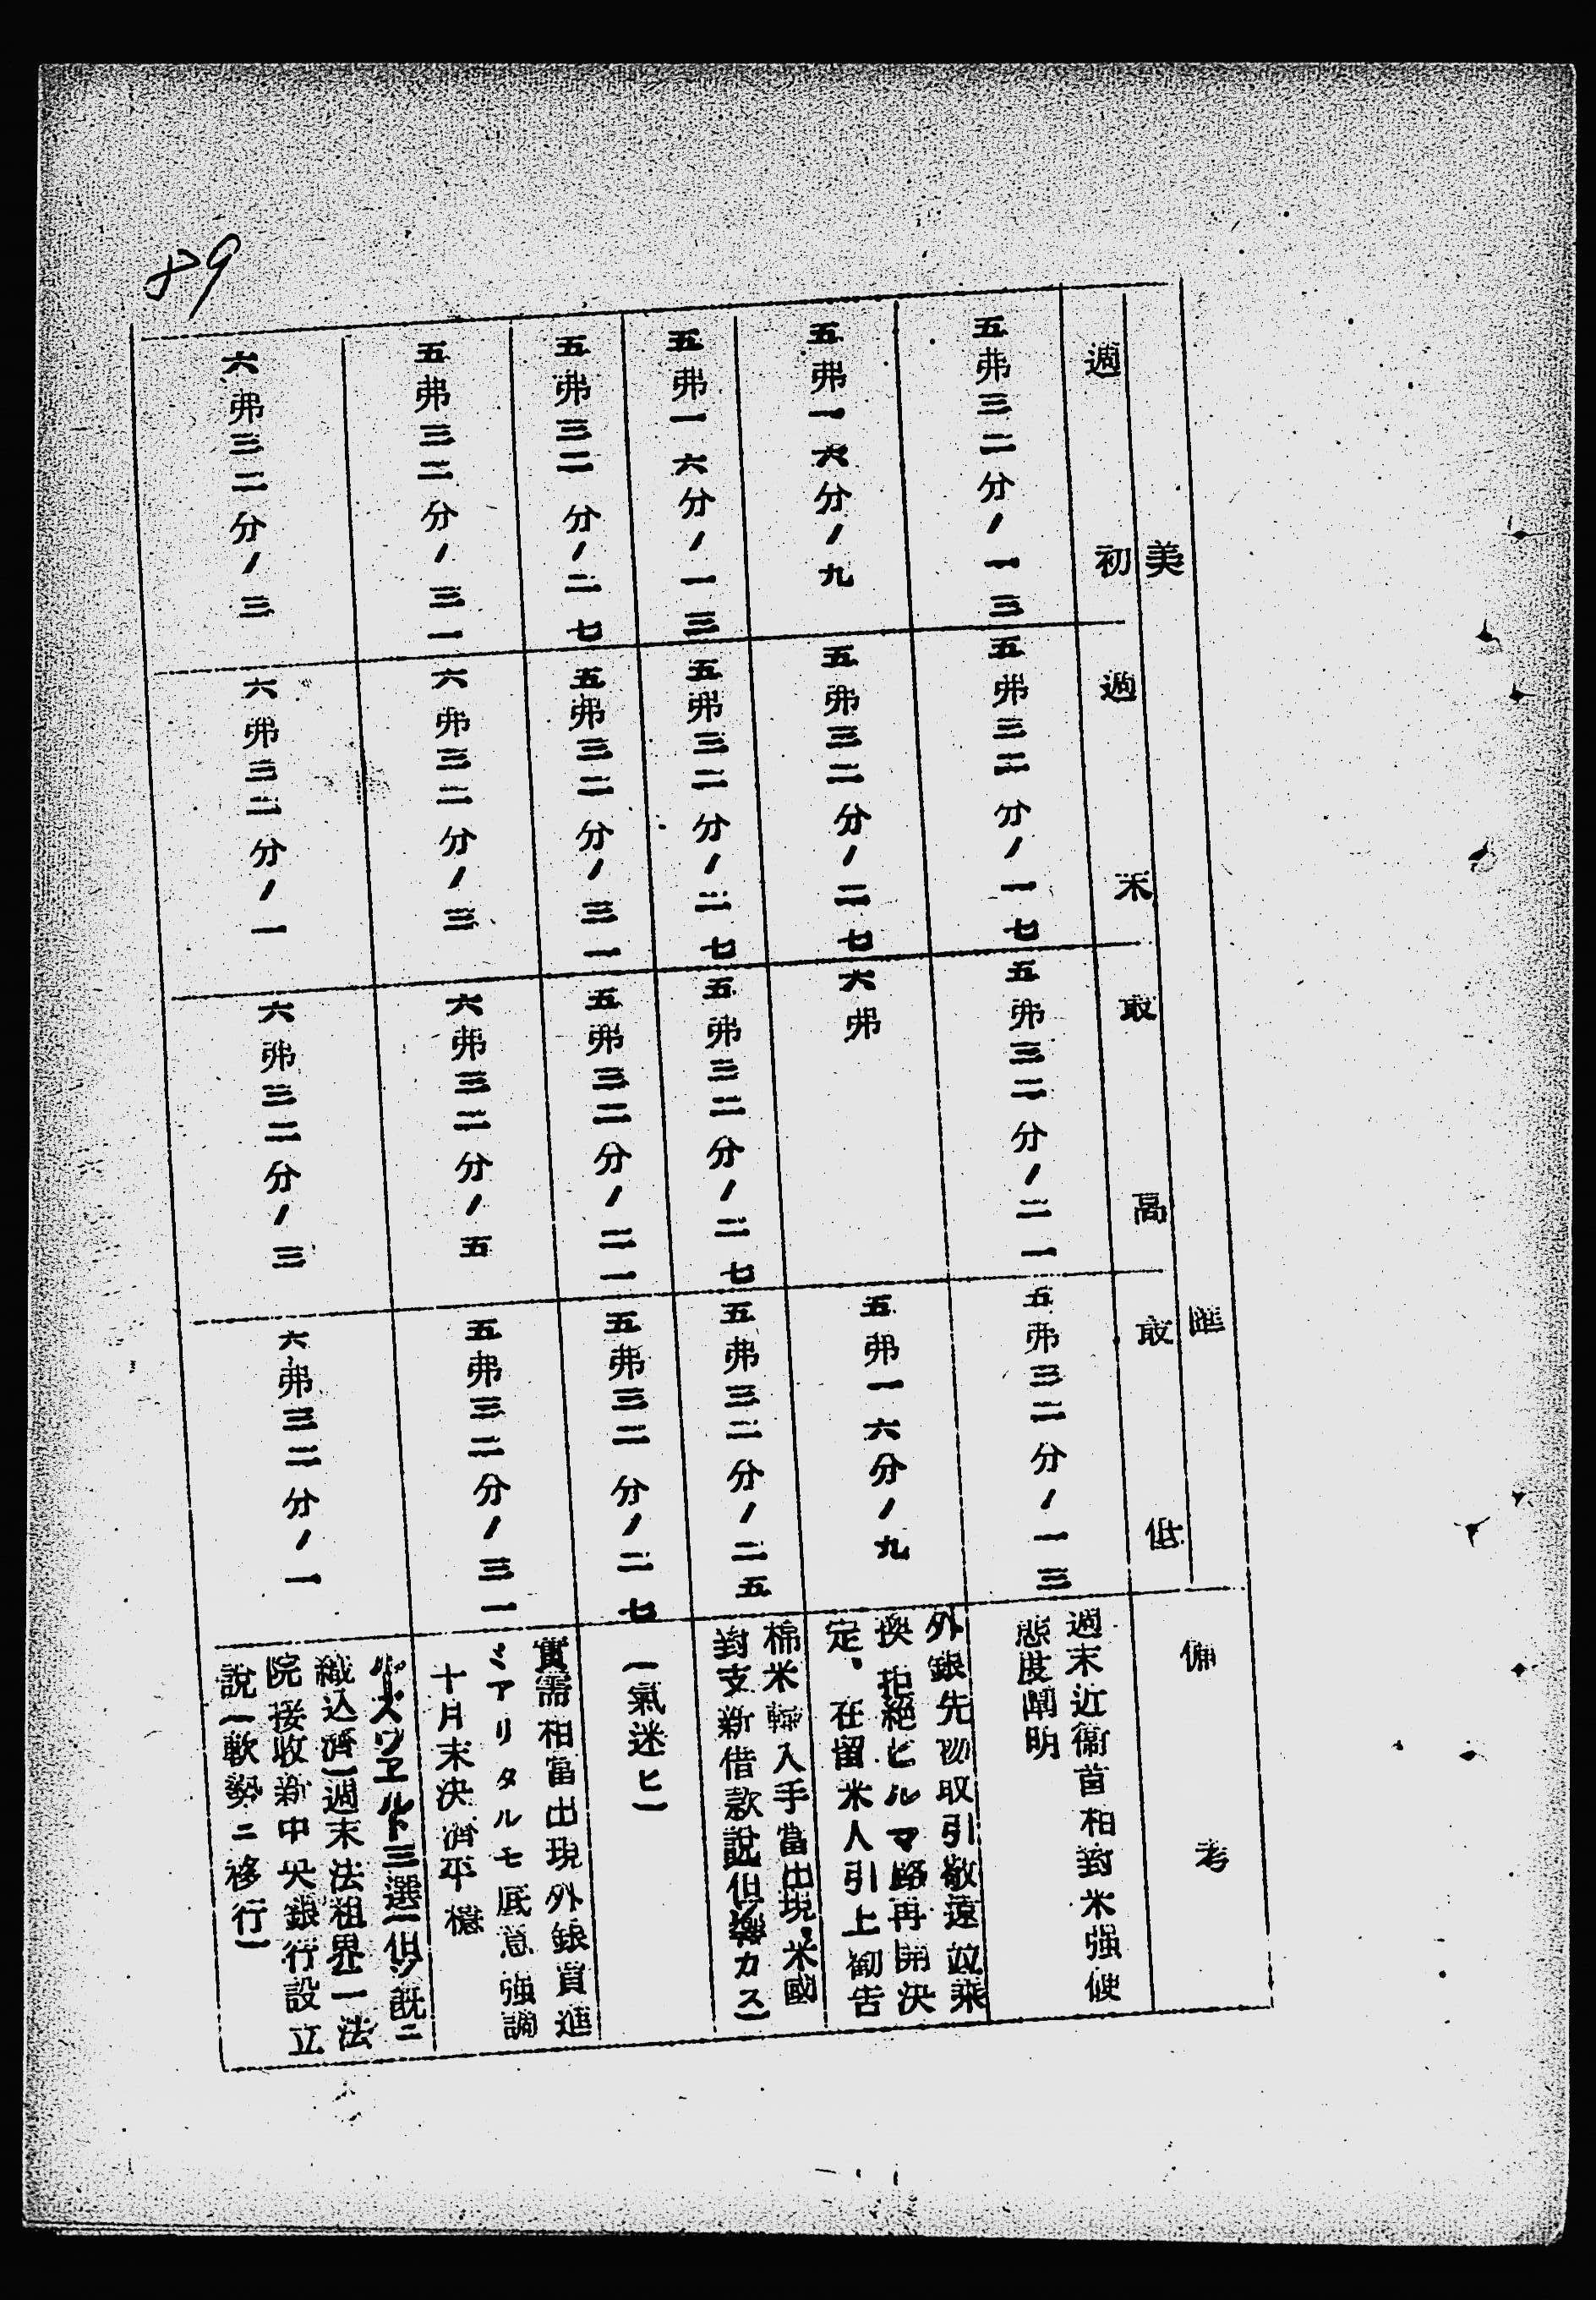 89
美匯
備考
週初
週末
最高
最低
五弗三二分ノ一三
五弗三二分ノ一七
五弗三二分ノ二一
五弗三二分ノ一三
週末近衞首相對米强硬
態度闡明
五弗一六分ノ九
五弗三二分ノ二七
六弗
五弗一六分ノ九
外銀先物取引敬遠並乘
換拒絕ビルマ路再開決
定、在留米人引上勸吿
五弗一六分ノ一三
五弗三二分ノ二七
五弗三二分ノ二七
五弗三二分ノ二五
棉米輸入手當出現、米國
對支新借款說(但シ動カス)
五弗三二分ノ二七
五弗三二分ノ三一
五弗三二分ノ二一
五弗三二分ノ二七
(氣迷ヒ)
五弗三二分ノ三一
六弗三二分ノ三
六弗三二分ノ五
五弗三二分ノ三一
實需相當出現外銀買進
ミアリタルモ底意强調
十月末決濟平穩
六弗三二分ノ三
六弗三二分ノ一
六弗三二分ノ三
六弗三二分ノ一
ルーズヴエルト三選(但シ既ニ
織込濟)週末法租界ニ法
院接收新中央銀行設立
說(軟勢ニ移行)